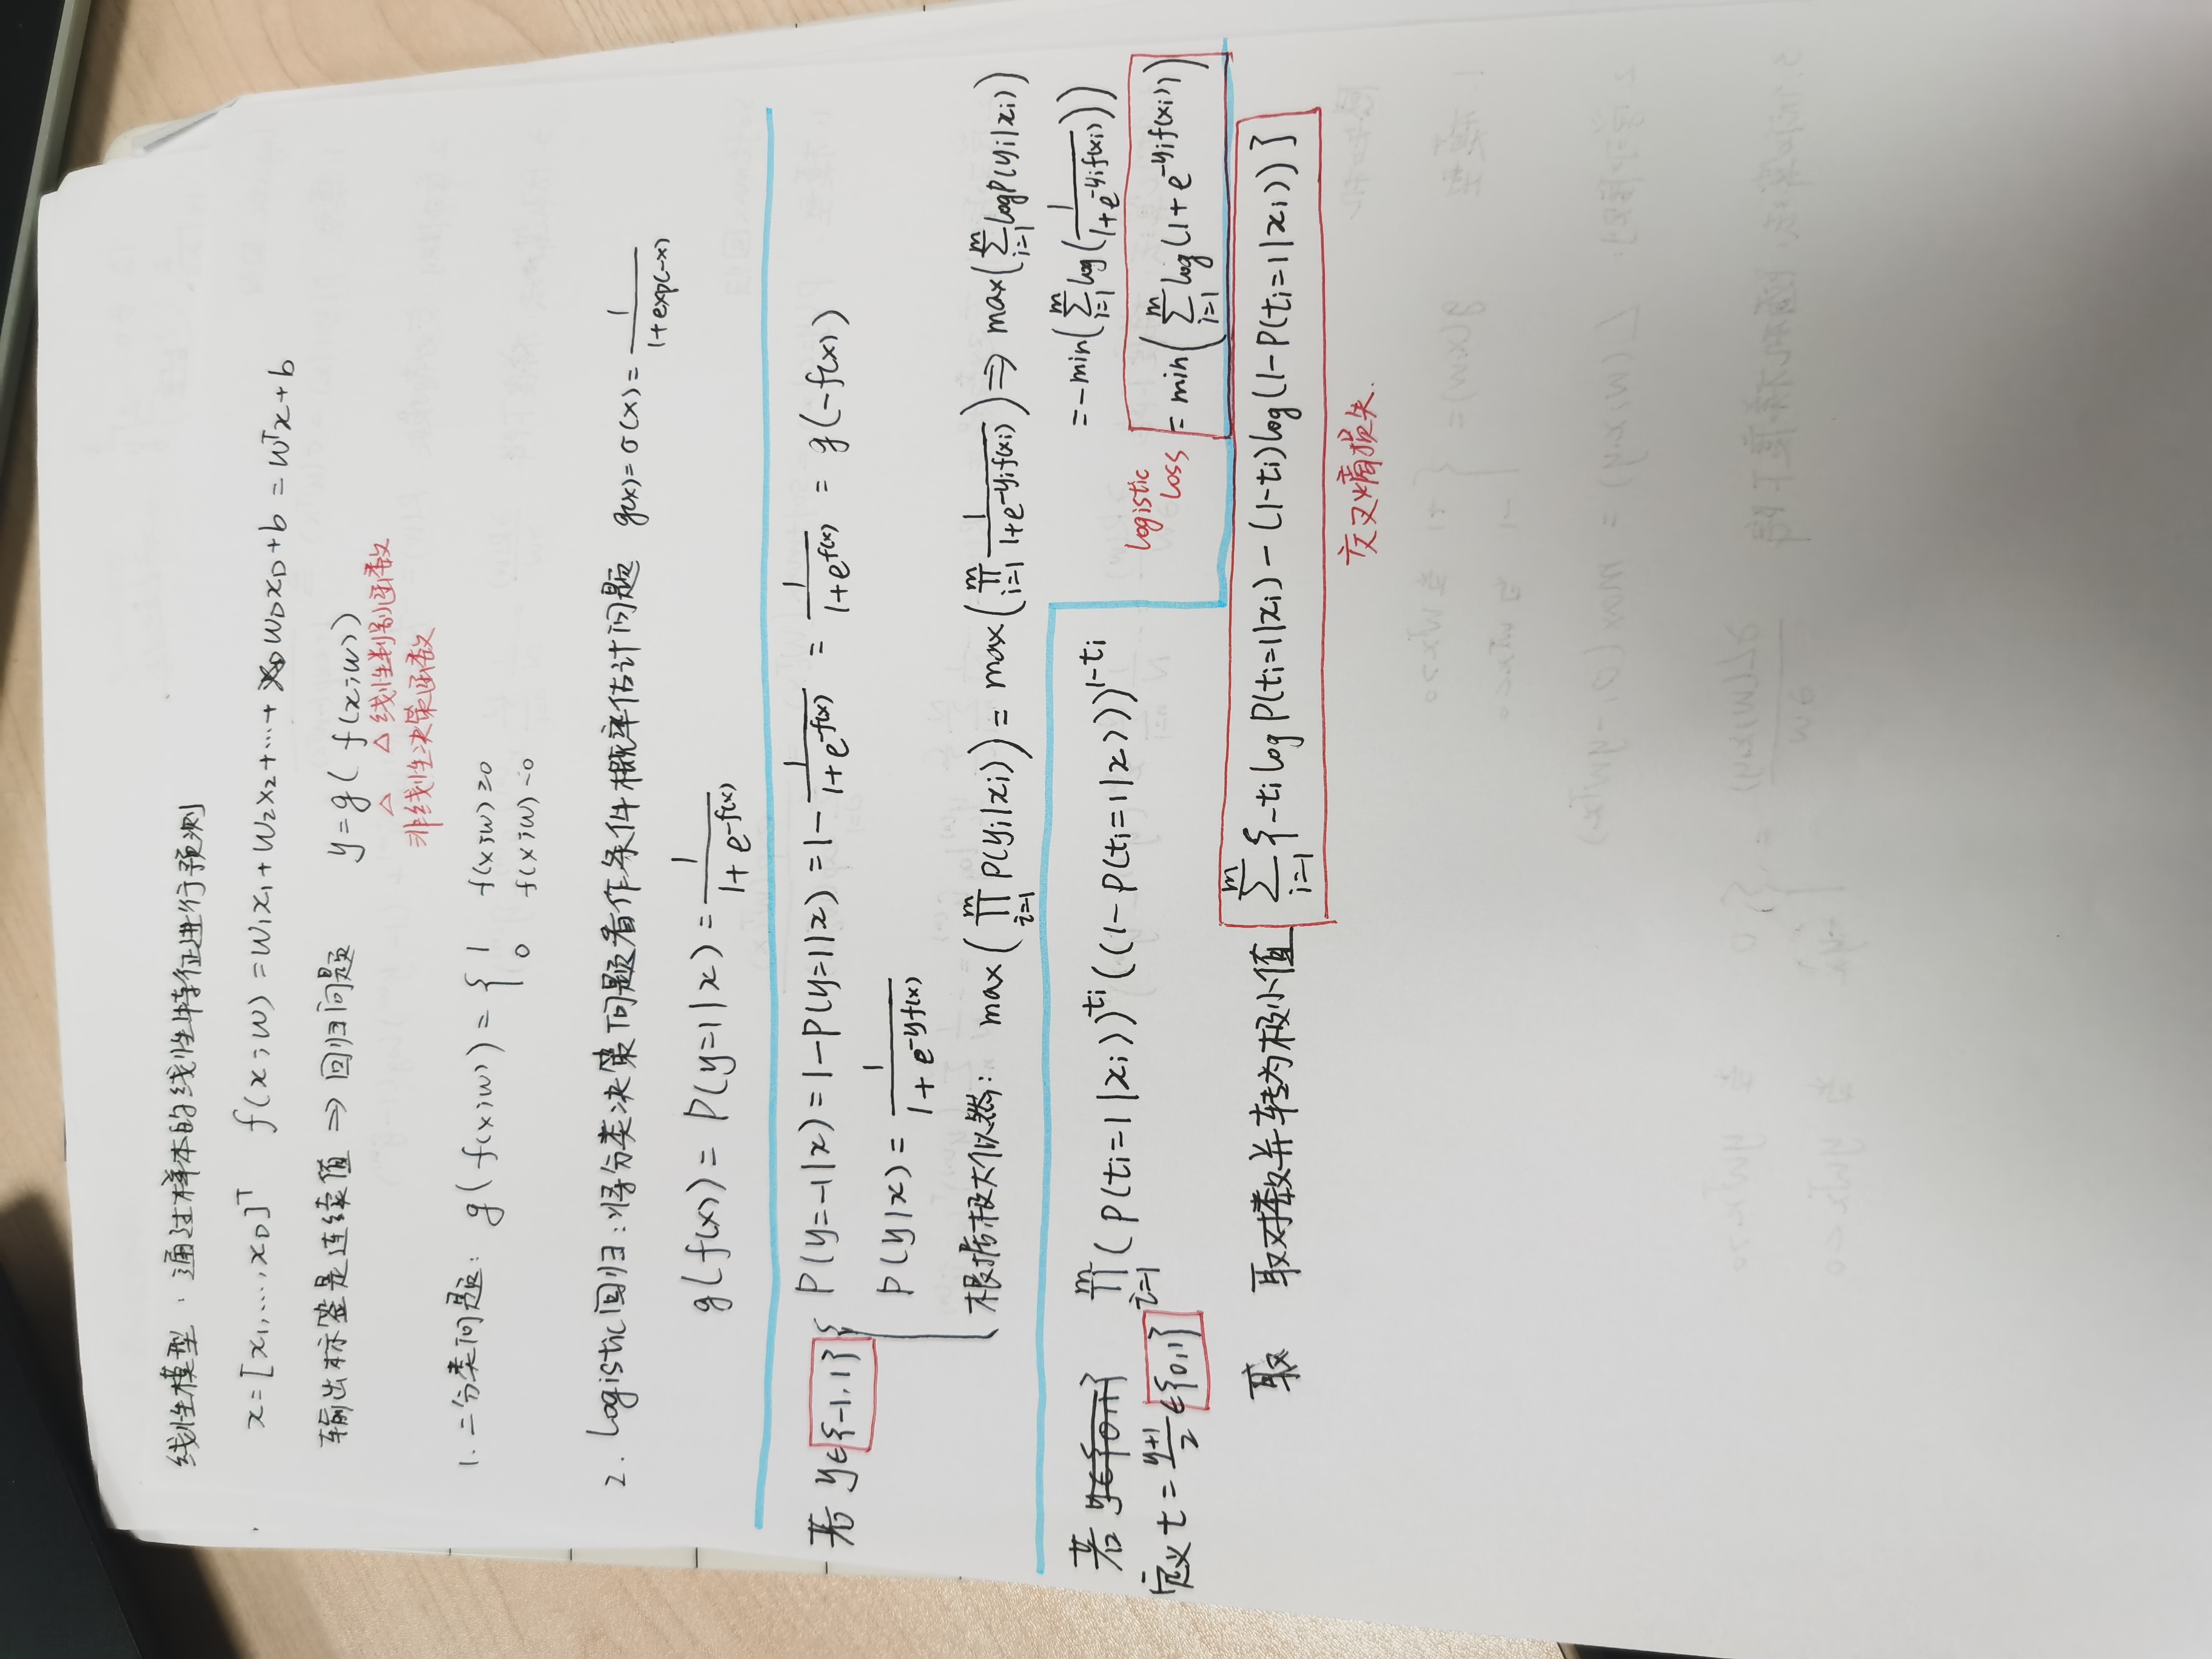 线性模型：通过样本的线性特征进行预测
x=[x₁,...,x_D]ᵀ f(x;w)=w₁x₁+w₂x₂+...+w_Dx_D+b=wᵀx+b
输出标签是连续值 ⇒ 回归问题 y=g(f(x;w))
△ △ 线性判别函数
非线性决策函数
1. 二分类问题: g(f(x;w))={ 1 f(x;w)≥0
0 f(x;w)<0
2. Logistic回归:将分类决策问题看作条件概率估计问题 g(x)=σ(x)=1/(1+exp(-x))
g(f(x))=P(y=1|x)=1/(1+e^{-f(x)})
若 y∈{-1,1} { P(y=-1|x)=1-P(y=1|x)=1-1/(1+e^{-f(x)})=1/(1+e^{f(x)})=g(-f(x))
P(y|x)=1/(1+e^{-yf(x)})
根据极大似然: max(∏_{i=1}^{m}P(yᵢ|xᵢ))=max(∏_{i=1}^{m}1/(1+e^{-yᵢf(xᵢ)}))⇒max(∑_{i=1}^{m}logP(yᵢ|xᵢ))
=-min(∑_{i=1}^{m}log(1/(1+e^{-yᵢf(xᵢ)})))
logistic loss =min(∑_{i=1}^{m}log(1+e^{-yᵢf(xᵢ)}))
若 y∈{0,1}
定义 t=(y+1)/2∈{0,1} ∏_{i=1}^{m}(P(tᵢ=1|xᵢ))^{tᵢ}((1-P(tᵢ=1|x)))^{1-tᵢ}
取 取对数并转为极小值 ∑_{i=1}^{m}{-tᵢlogP(tᵢ=1|xᵢ)-(1-tᵢ)log(1-P(tᵢ=1|xᵢ))}
交叉熵损失.